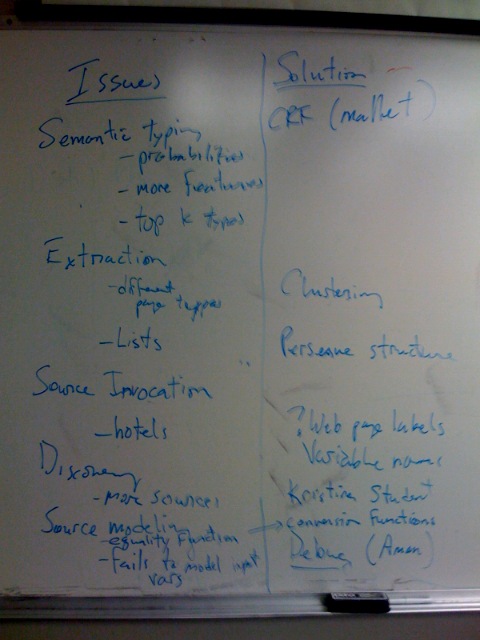 Issues
Semantic typing
- probabilities
- more features
- top k types
Extraction
- different
page types
- Lists
Source Invocation
- hotels
Discovery
- more sources
Source modeling
- equality function
- fails to model input
vars
Solution
CRF (mallet)
Clustering
structure
? Web page labels
Variable names
Kristina Student
→ conversion functions
Debug (Aman)